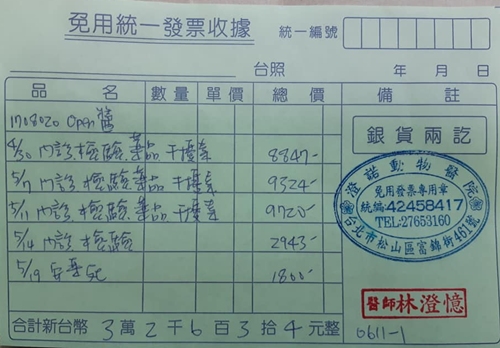 免用統一發票收據
統一編號
台照 年 月 日
品名 數量 單價 總價 備註
1708020 Open 醬
4/30 內診 檢驗 藥品 干擾素 8847-
5/7 內診 檢驗 藥品 干擾素 9324-
5/11 內診 檢驗 藥品 干擾素 9720-
5/14 內診 檢驗 2943-
5/19 安樂死 1800-
合計新台幣 3萬2千6百3拾4元整
銀貨兩訖
澄諾動物醫院
免用發票專用章
統編:42458417
TEL:27653160
台北市松山區富錦街461號
醫師 林澄憶
0611-1